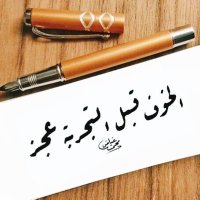 الخوف قبل التجربة عجز